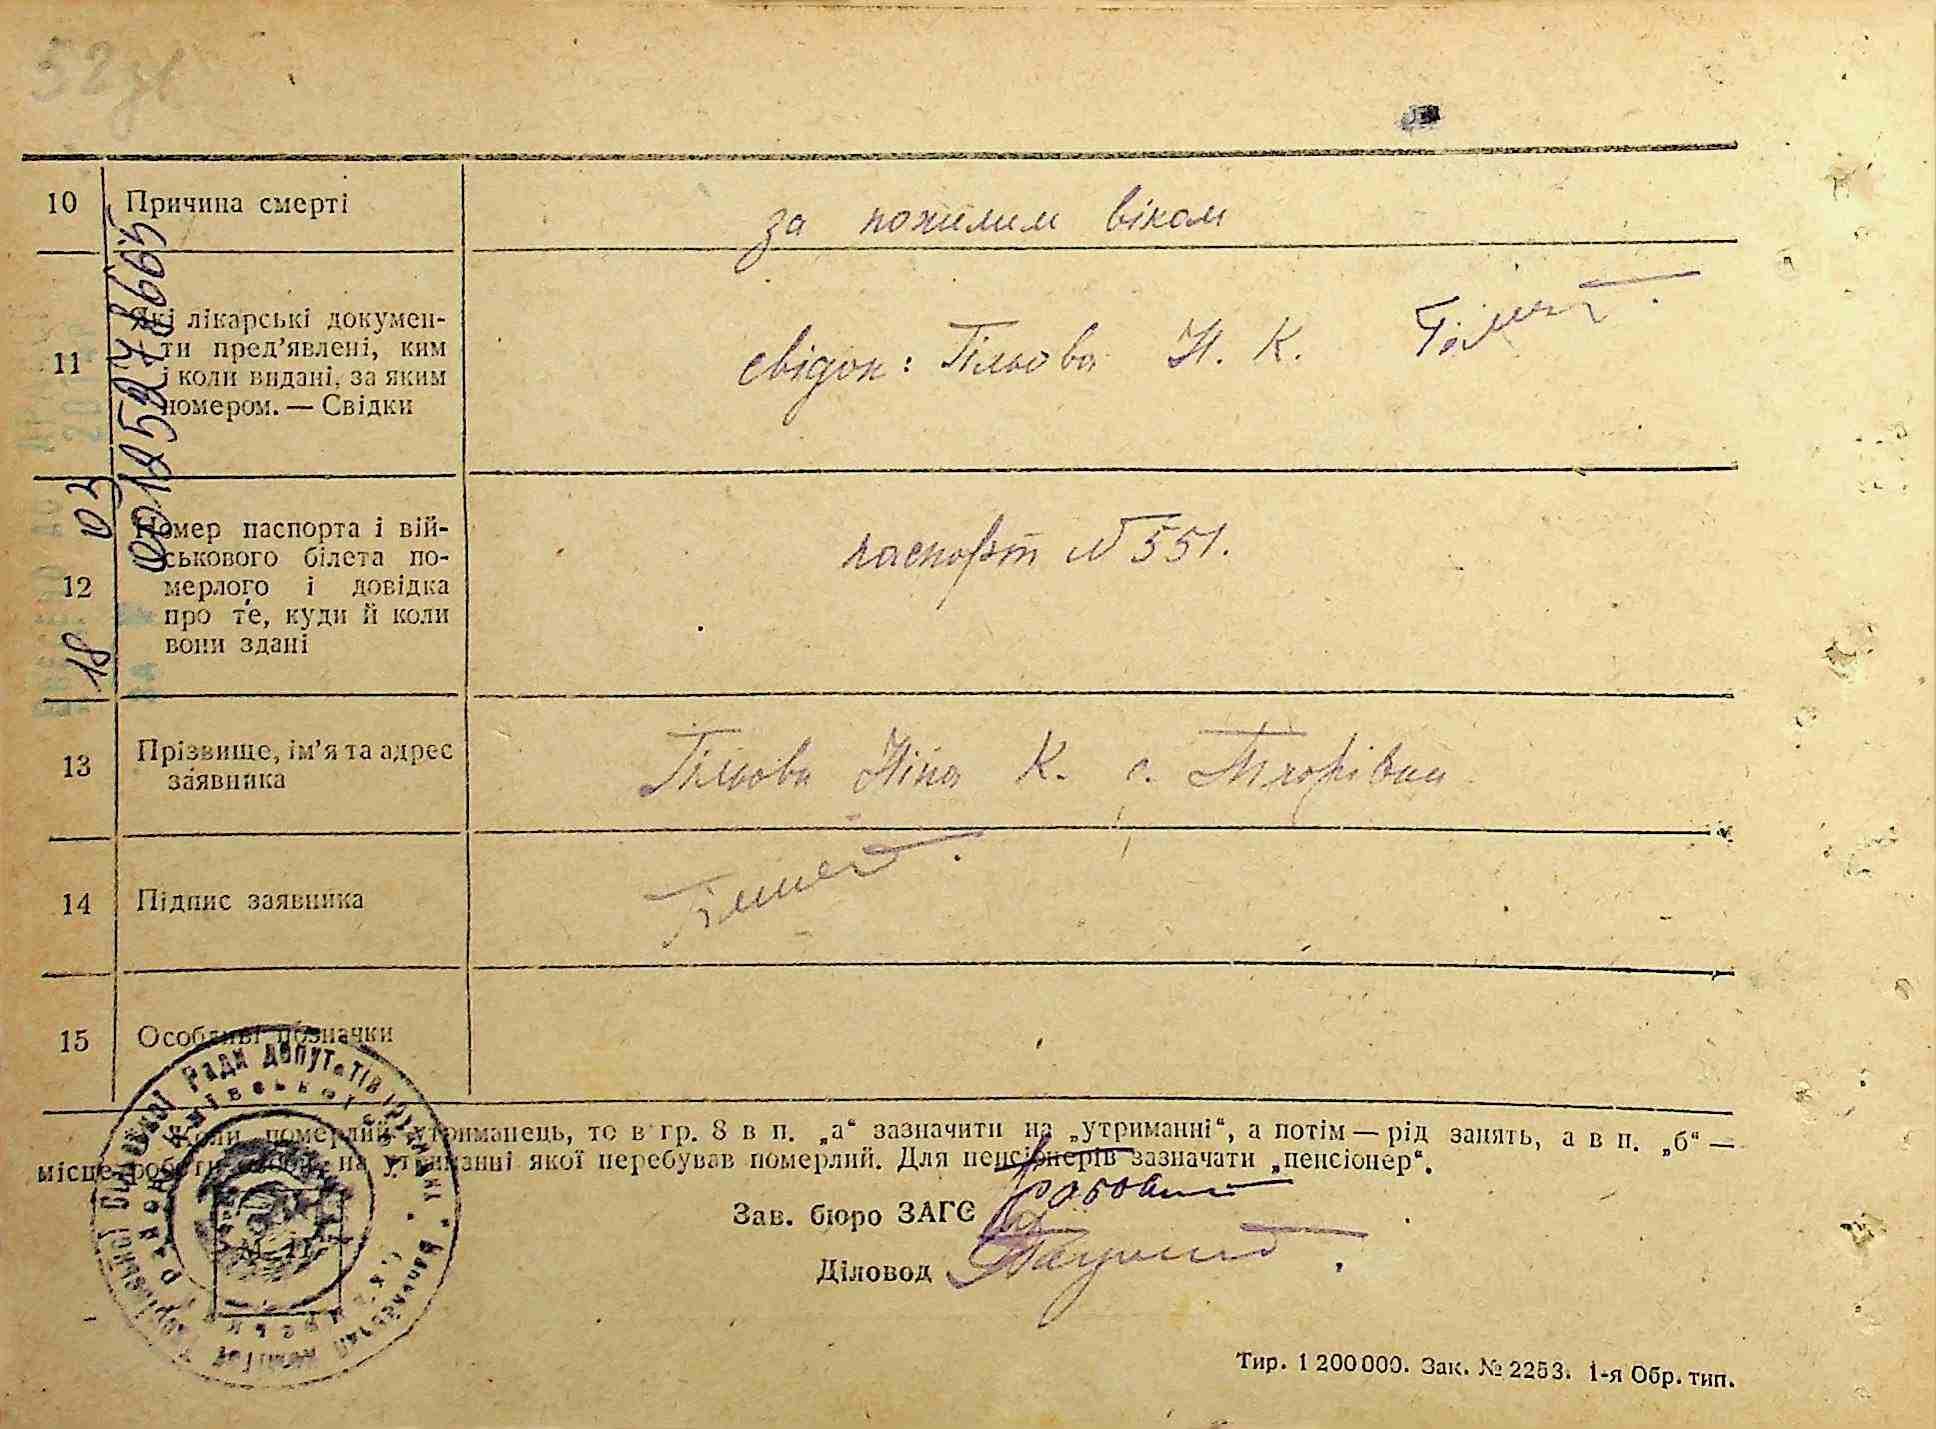 10 Причина смерті
за похилим віком
11 Які лікарські докумен-
ти пред'явлені, ким
і коли видані, за яким
номером. — Свідки
свідок: Гільова Н. К.
12 Номер паспорта і вій-
ськового білета по-
мерлого і довідка
про те, куди й коли
вони здані
паспорт № 551.
13 Прізвище, ім'я та адрес
заявника
Гільова Ніна К. с.
14 Підпис заявника
15 Особливі позначки
Коли померлий утриманець, то в гр. 8 в п. „а“ зазначити на „утриманні“, а потім — рід занять, а в п. „б“ —
місце роботи особи, на утриманні якої перебував померлий. Для пенсіонерів зазначати „пенсіонер“.
Зав. бюро ЗАГС
Діловод
Тир. 1 200 000. Зак. № 2253. 1-я Обр. тип.
18 03
Ради депутатів трудящих